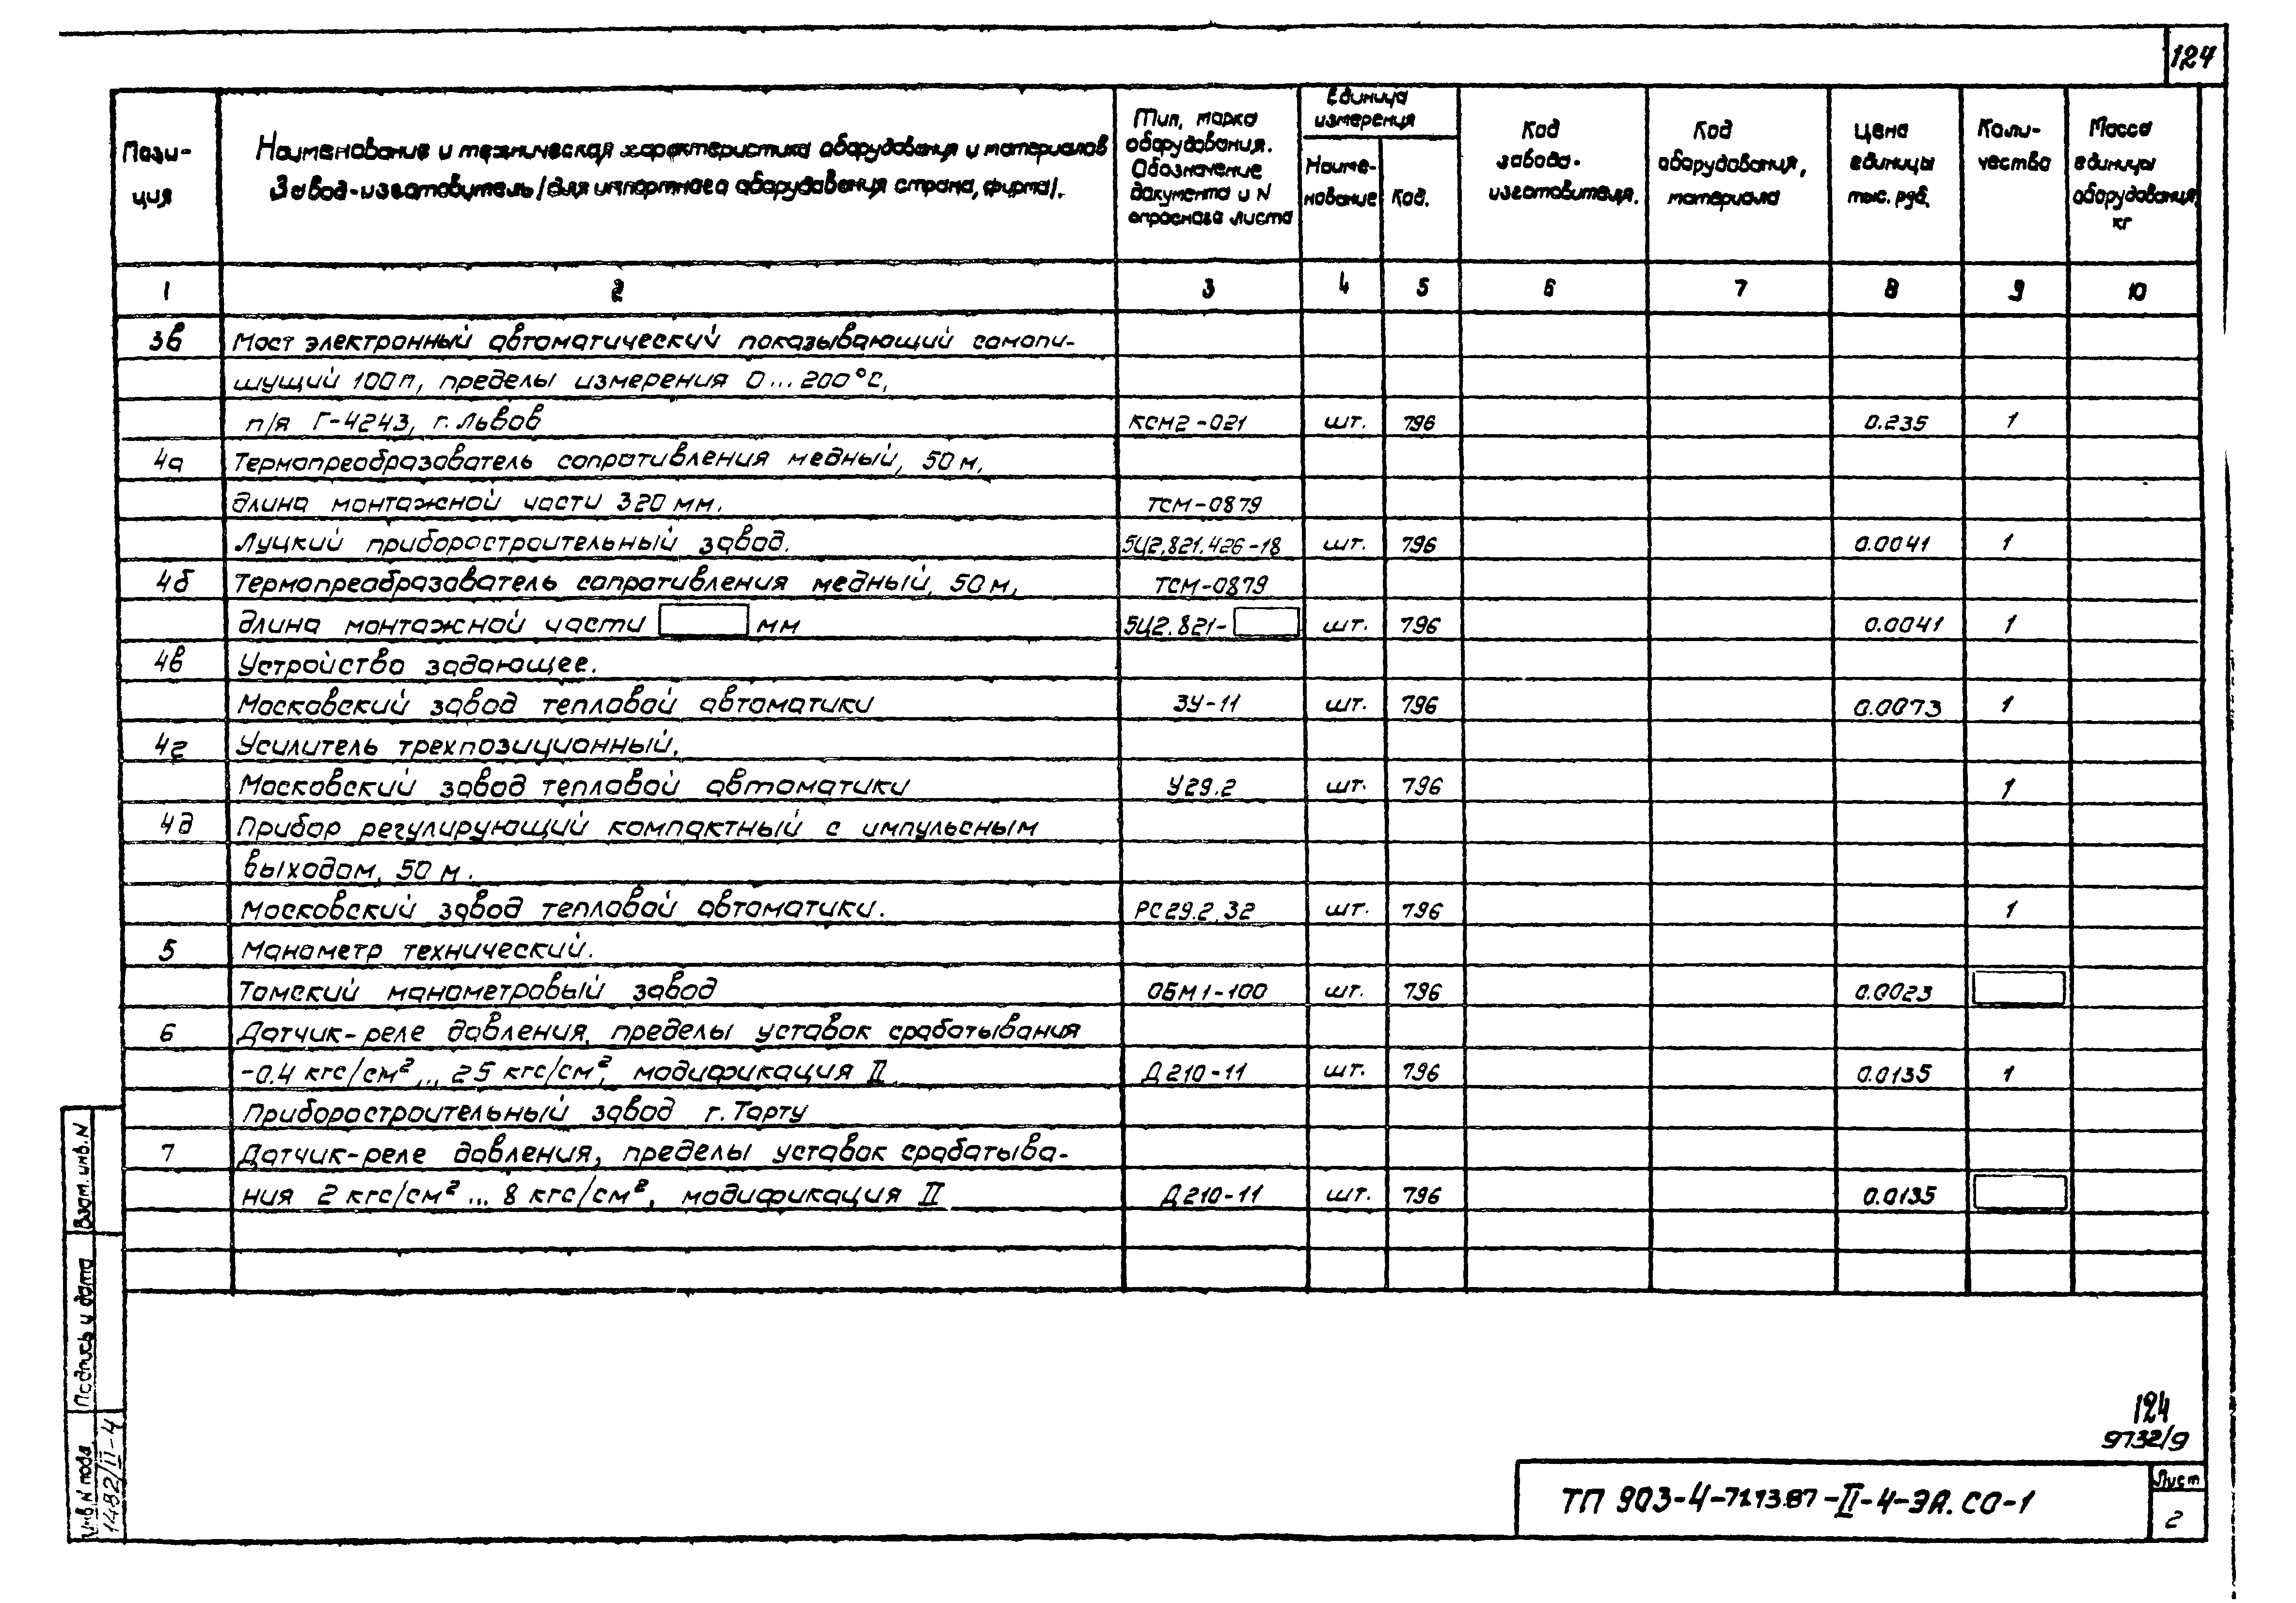 124
Пози-
ция
Наименование и техническая характеристика оборудования и материалов
Завод-изготовитель /для импортного оборудования страна, фирма/.
Тип, марка
оборудования.
Обозначение
документа и N
опросного листа
Единица
измерения
Наиме-
нование
Код.
Код
завода-
изготовителя.
Код
оборудования,
материала
Цена
единицы
тыс. руб.
Коли-
чество
Масса
единицы
оборудования,
кг
1 2 3 4 5 6 7 8 9 10
3в Мост электронный автоматический показывающий самопи-
шущий 100п, пределы измерения 0...200°С,
п/я Г-4243, г. Львов КСМ2-021 шт. 796 0.235 1
4а Термопреобразователь сопротивления медный, 50м,
длина монтажной части 320 мм. ТСМ-0879
Луцкий приборостроительный завод. 5Ц2.821.426-18 шт. 796 0.0041 1
4б Термопреобразователь сопротивления медный, 50м, ТСМ-0879
длина монтажной части мм 5Ц2.821- шт. 796 0.0041 1
4в Устройство задающее.
Московский завод тепловой автоматики ЗУ-11 шт. 796 0.0073 1
4г Усилитель трехпозиционный.
Московский завод тепловой автоматики У29.2 шт. 796 1
4д Прибор регулирующий компактный с импульсным
выходом, 50 м.
Московский завод тепловой автоматики. РС29.2.32 шт. 796 1
5 Манометр технический.
Томский манометровый завод ОБМ1-100 шт. 796 0.0023
6 Датчик-реле давления, пределы уставок срабатывания
-0.4 кгс/см² ... 25 кгс/см², модификация II Д210-11 шт. 796 0.0135 1
Приборостроительный завод г. Тарту
7 Датчик-реле давления, пределы уставок срабатыва-
ния 2 кгс/см² ... 8 кгс/см², модификация II Д210-11 шт. 796 0.0135
Взам. инв. N
Подпись и дата
Инв. N подл.
1482/II-4
124
9732/9
ТП 903-4-72.13.87-II-4-ЭА.СО-1
Лист
2